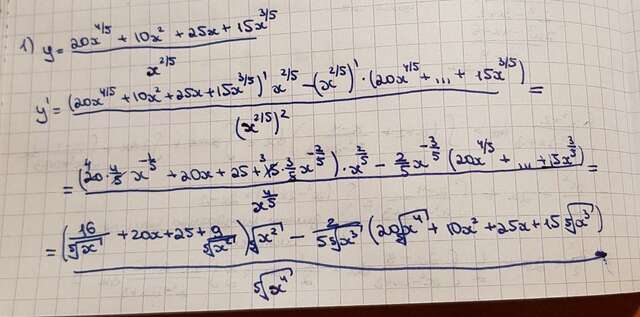 1) y = (20x^(4/5) + 10x² + 25x + 15x^(3/5)) / x^(2/5)
y' = ((20x^(4/5) + 10x² + 25x + 15x^(3/5))' x^(2/5) − (x^(2/5))' · (20x^(4/5) + ... + 15x^(3/5))) / (x^(2/5))² =
= ((20 · 4/5 x^(-1/5) + 20x + 25 + 15 · 3/5 x^(-2/5)) · x^(2/5) − 2/5 x^(-3/5) (20x^(4/5) + ... + 15x^(3/5))) / x^(4/5) =
= ((16/⁵√x + 20x + 25 + 9/⁵√x²) ⁵√x² − 2/(5 ⁵√x³) (20 ⁵√x⁴ + 10x² + 25x + 15 ⁵√x³)) / ⁵√x⁴